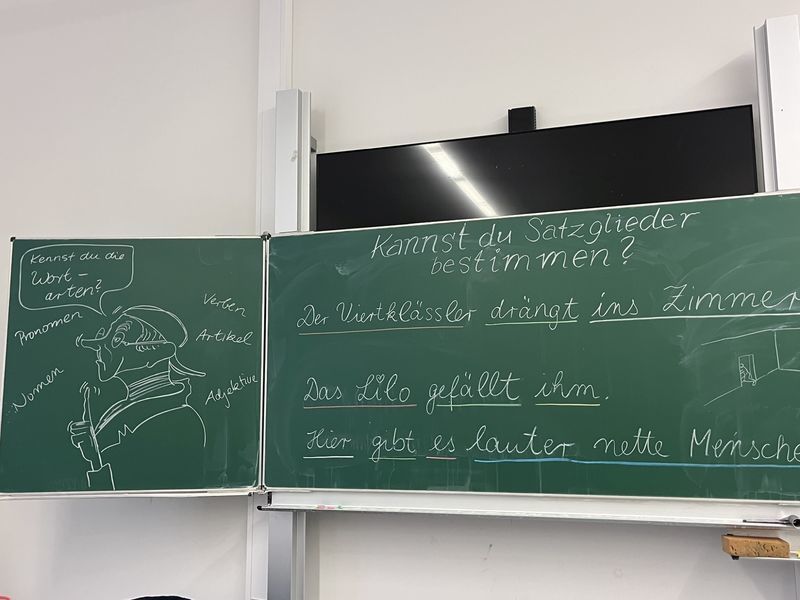 Kennst du die
Wort-
arten?
Pronomen
Verben
Artikel
Nomen
Adjektive
Kannst du Satzglieder
bestimmen?
Der Viertklässler drängt ins Zimmer
Das Lilo gefällt ihm.
Hier gibt es lauter nette Mensche